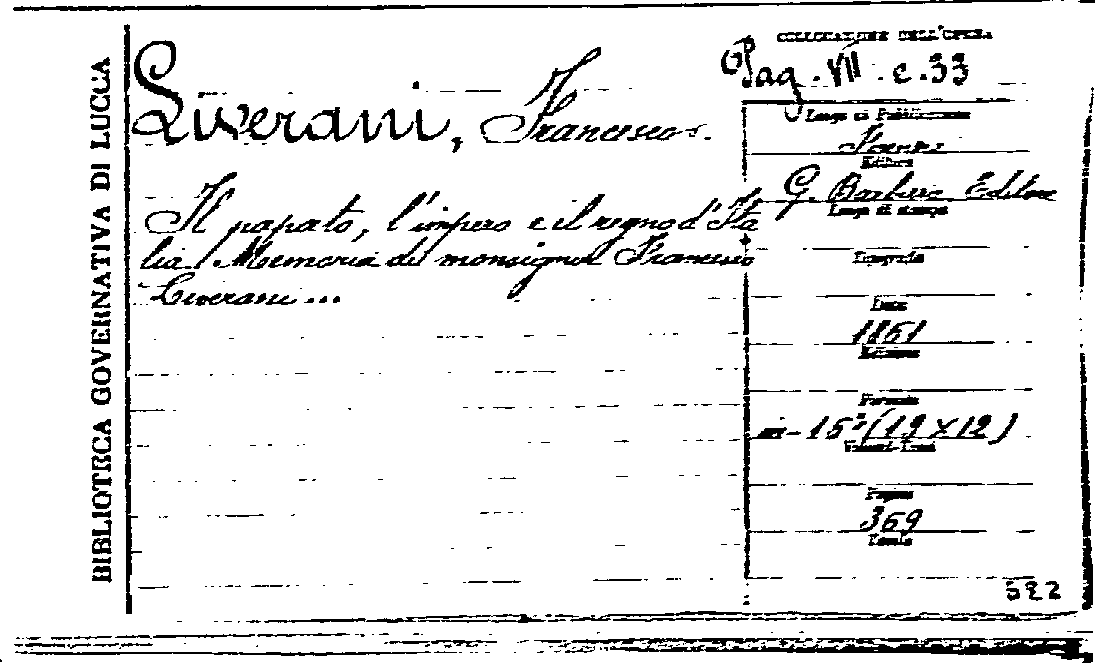 BIBLIOTECA GOVERNATIVA DI LUCCA
COLLOCAZIONE DELL'OPERA
Pag. VII. c. 33
Liverani, Francesco.
Il papato, l'impero e il regno d'Ita
lia / Memoria di monsignor Francesco
Liverani ...
Luogo di Pubblicazione
Editore
G. Barbera Editore
Luogo di stampa
Tipografia
Data
1861
Edizione
Formato
in-16° (19 X 12)
Pagine
369
Tavole
522